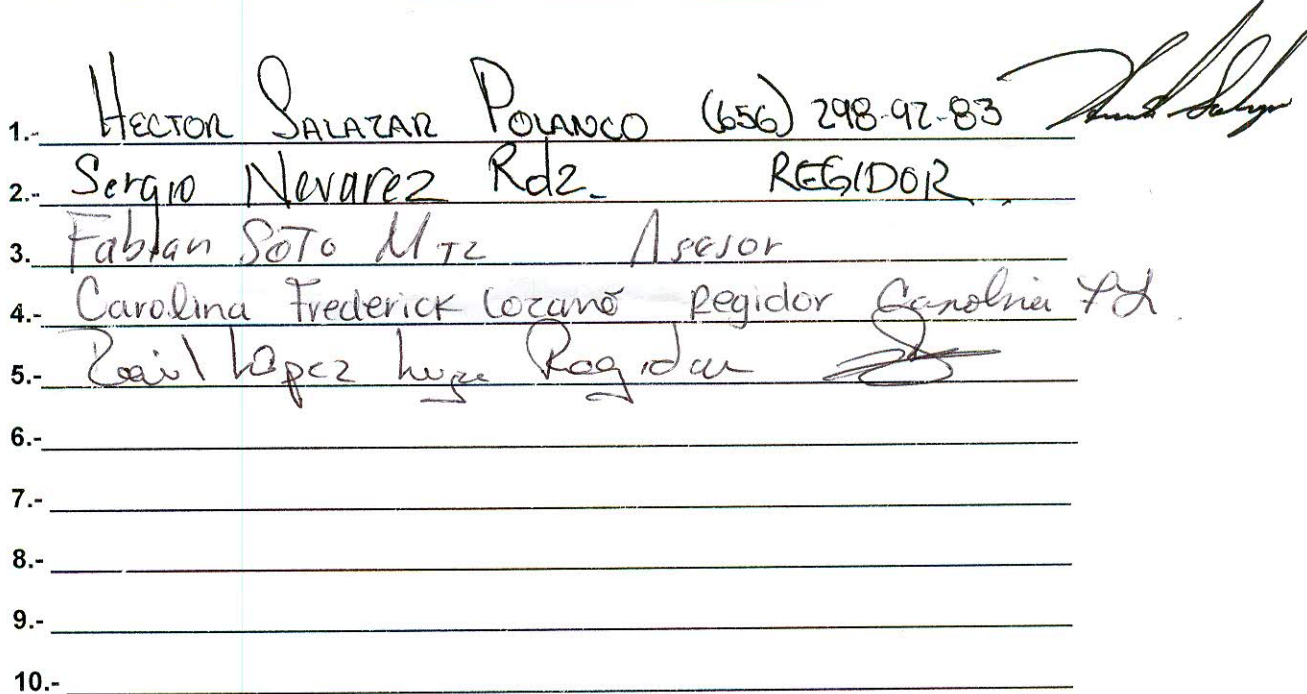 1.- HECTOR SALAZAR POLANCO (656) 298-92-83
2.- Sergio Nevarez Rdz. REGIDOR.
3. Fabian SOTO MTZ Asesor
4.- Carolina Frederick Lozano Regidor Carolina F L.
5.- Raúl López Regidor
6.-
7.-
8.-
9.-
10.-